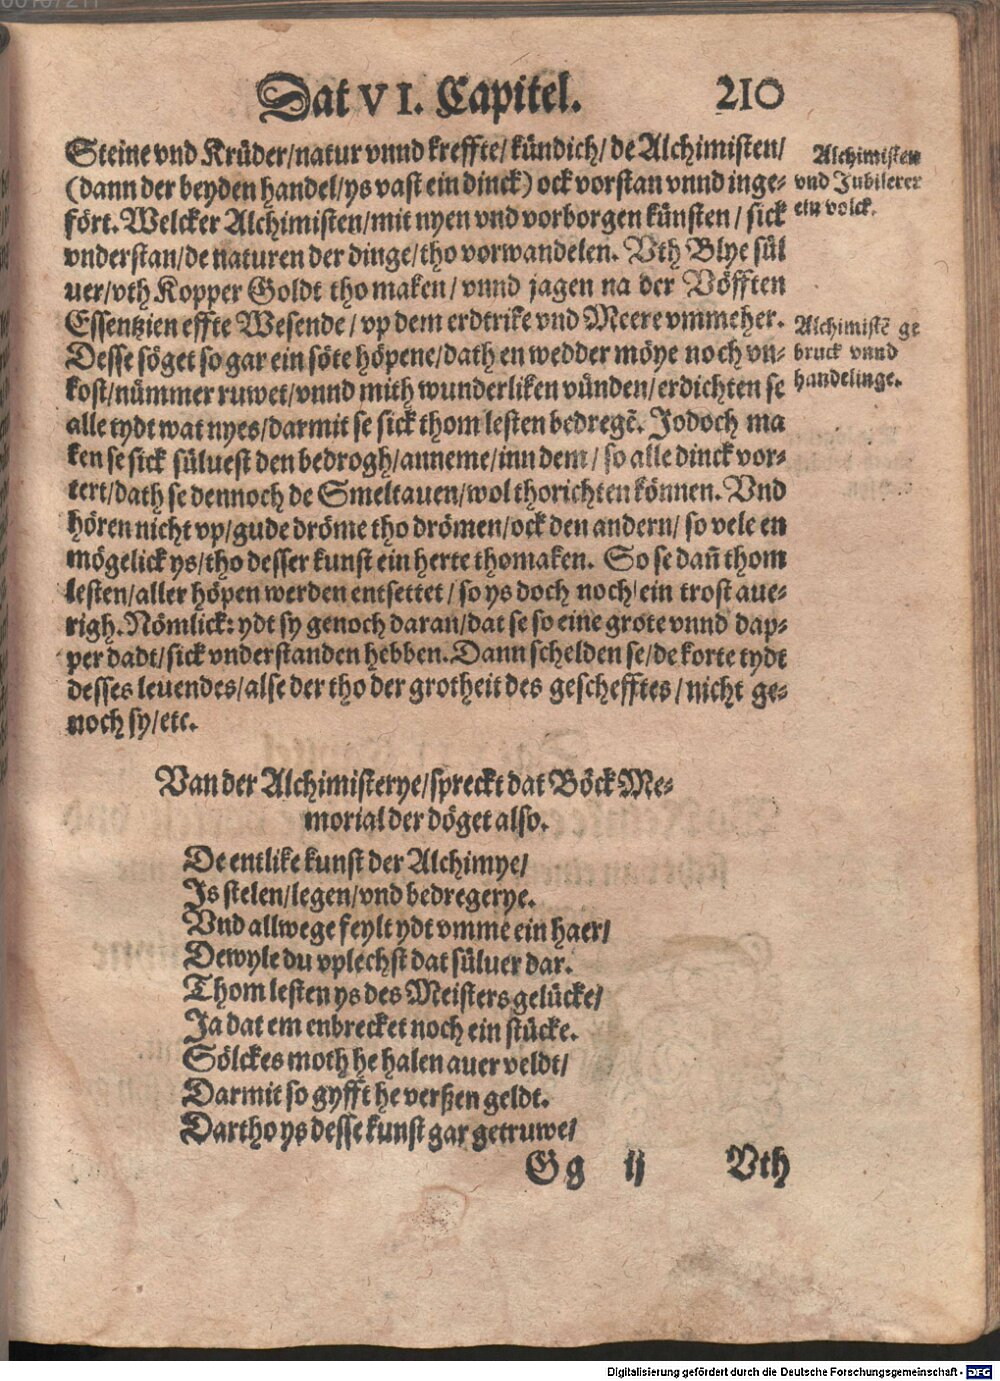 Dat VI. Capitel. 210
Steine vnd Krüder/natur vnnd kreffte/kündich/de Alchimisten/
(dann der beyden handel/ys vast ein dinck) ock vorstan vnnd inge-
fört. Welcker Alchimisten/mit nyen vnd vorborgen künsten/sick
vnderstan/de naturen der dinge/tho vorwandelen. Vth Blye sül
uer/vth Kopper Goldt tho maken/vnnd jagen na der Vöfften
Essentzien effte Wesende/vp dem erdtrike vnd Meere vmmeher.
Desse söget so gar ein söte höpene/dath en wedder möye noch vn-
kost/nümmer ruwet/vnnd mith wunderliken vünden/erdichten se
alle tydt wat nyes/darmit se sick thom lesten bedregē. Jodoch ma
ken se sick süluest den bedrogh/anneme/inn dem/so alle dinck vor-
tert/dath se dennoch de Smeltauen/wol thorichten können. Vnd
hören nicht vp/gude dröme tho drömen/ock den andern/so vele en
mögelick ys/tho desser kunst ein herte thomaken. So se dañ thom
lesten/aller höpen werden entsettet/so ys doch noch/ein trost aue-
righ. Nömlick: ydt sy genoch daran/dat se so eine grote vnnd dap-
per dadt/sick vnderstanden hebben. Dann schelden se/de korte tydt
desses leuendes/alse der tho der grotheit des geschefftes/nicht ge-
noch sy/etc.
Alchimisten
vnd Jubilerer
ein volck.
Alchimistē ge
bruck vnnd
handelinge.
Van der Alchimisterye/spreckt dat Böck Me-
morial der döget also.
De entlike kunst der Alchimye/
Js stelen/legen/vnd bedregerye.
Vnd allwege feylt ydt vmme ein haer/
Dewyle du vplechst dat süluer dar.
Thom lesten ys des Meisters gelücke/
Ja dat em enbrecket noch ein stücke.
Sölckes moth he halen auer veldt/
Darmit so gyfft he verßen geldt.
Dartho ys desse kunst gar getruwe/
Gg ij Vth
Digitalisierung gefördert durch die Deutsche Forschungsgemeinschaft - DFG